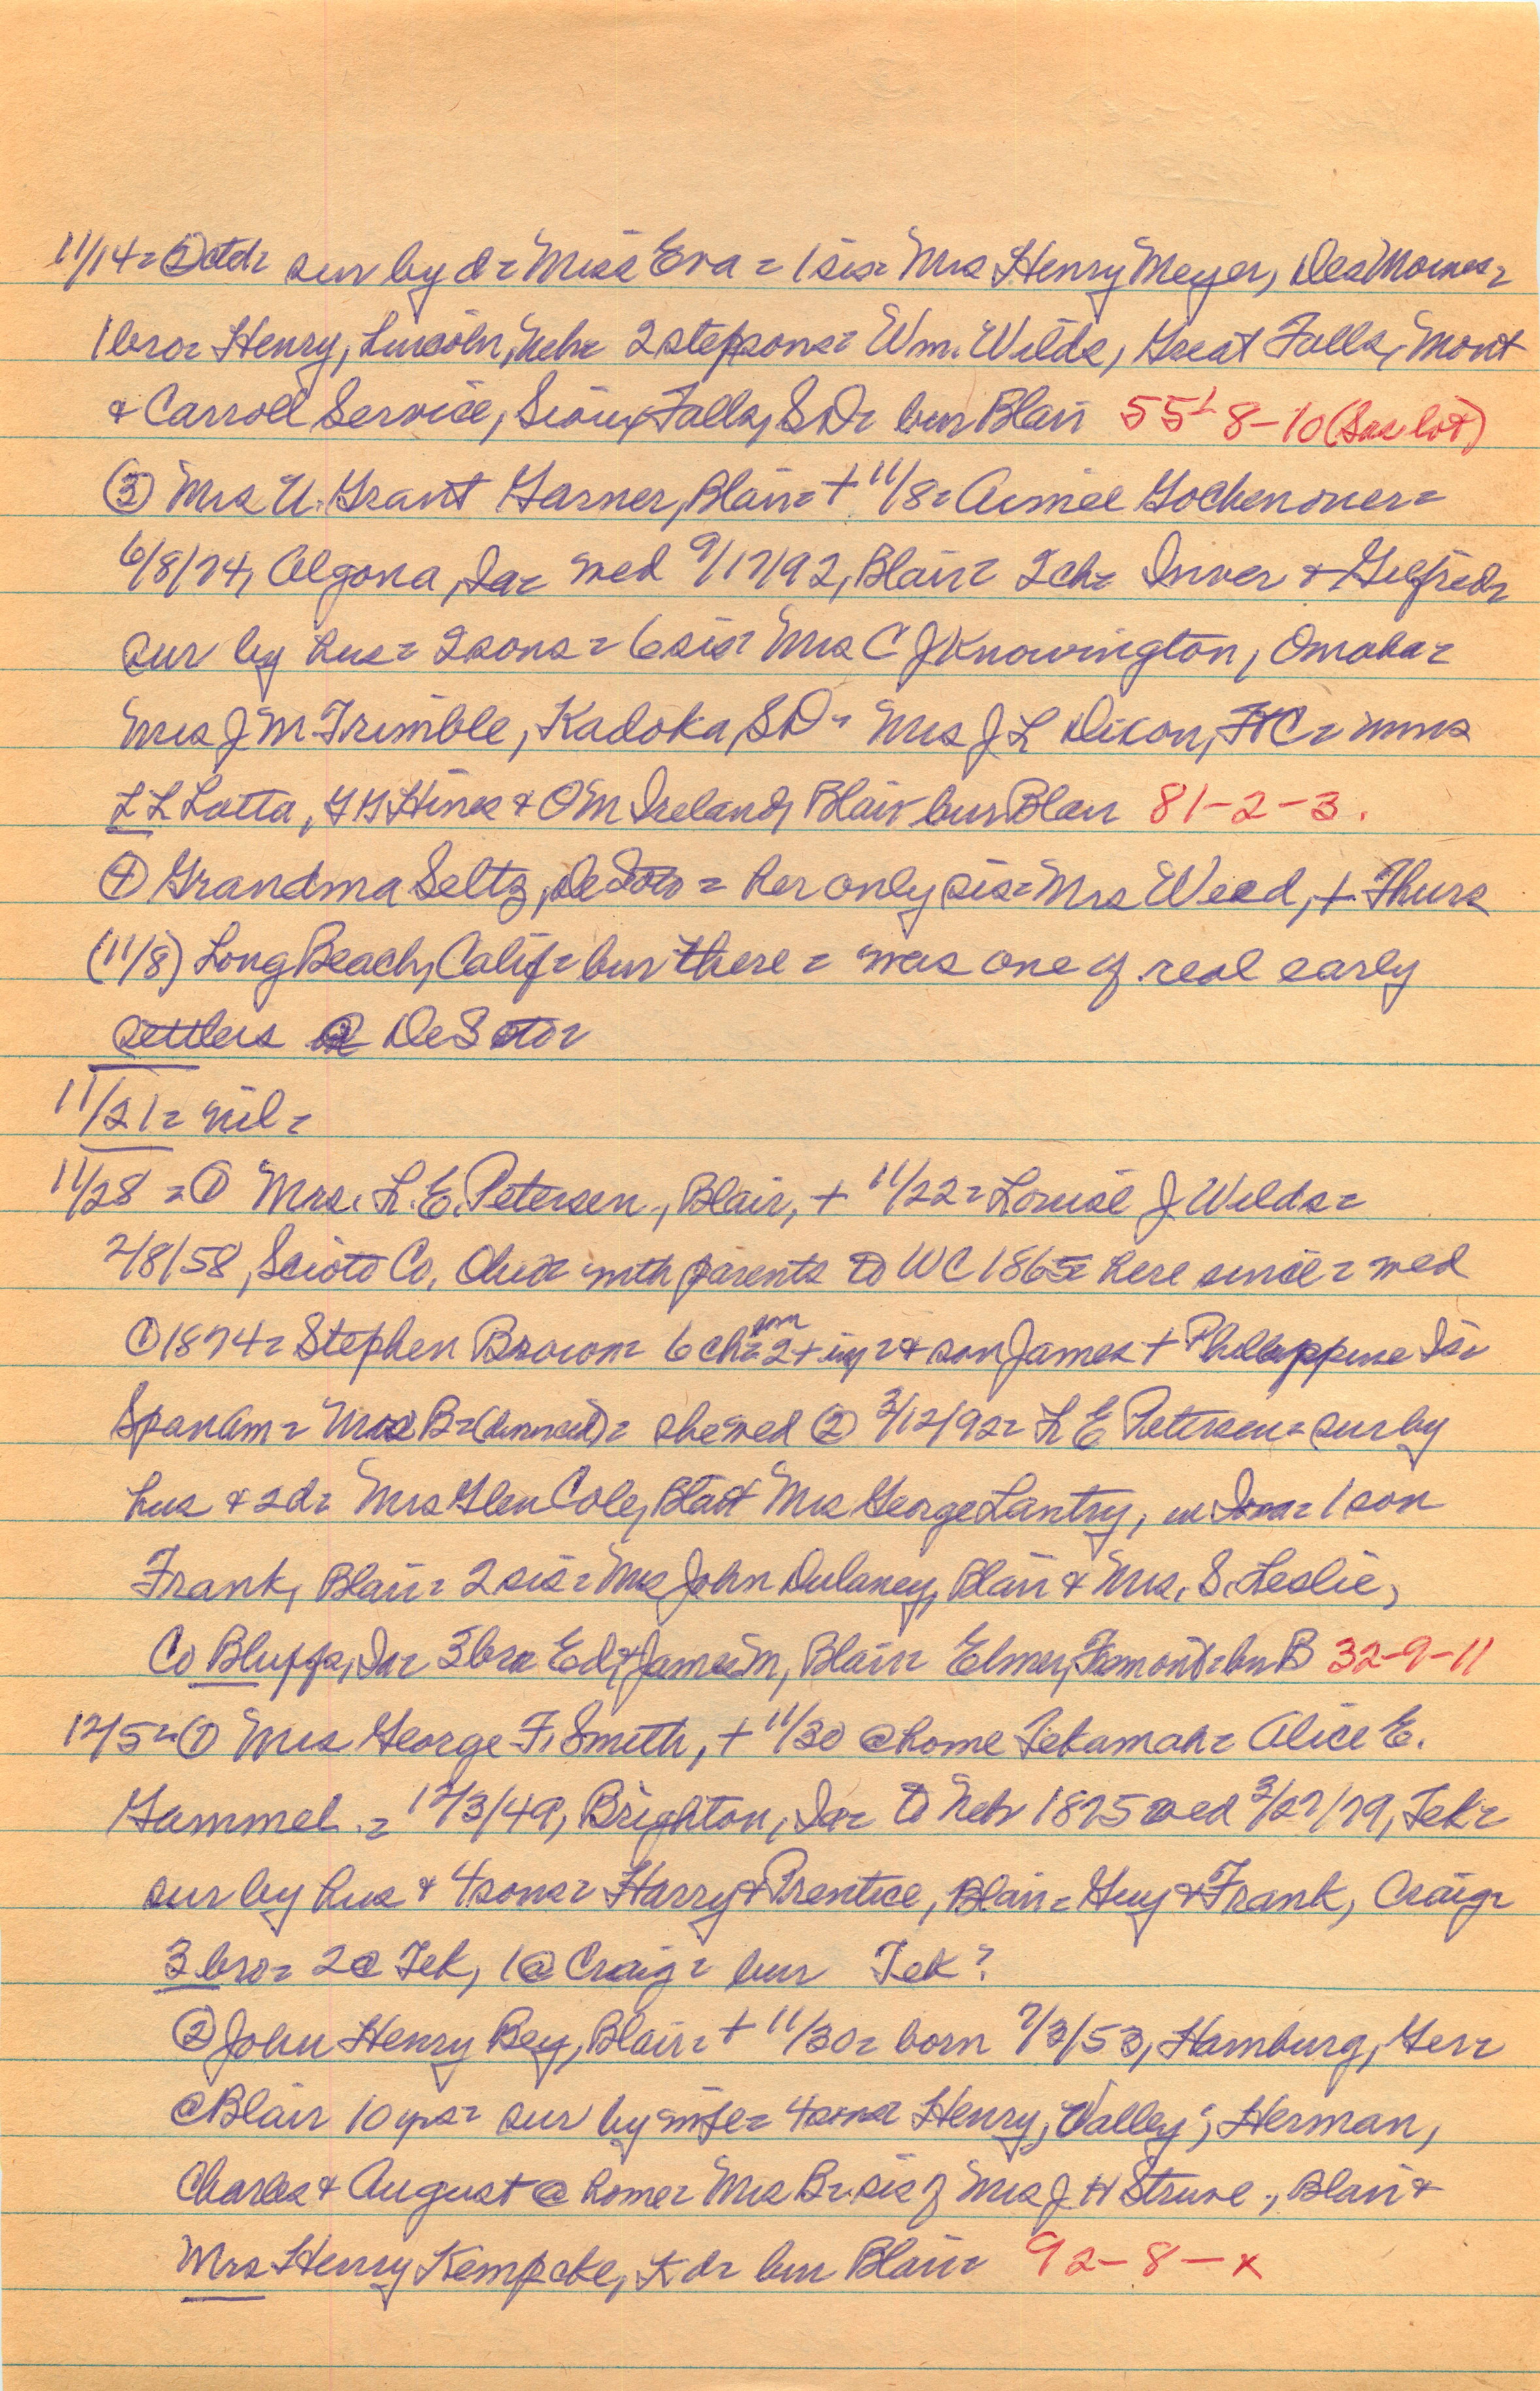 11/14= ② ctd= sur by d= Miss Eva = 1 sis= Mrs Henry Meyer, Des Moines=
1 bro= Henry, Lincoln, Neb= 2 stepsons= Wm. Wilds, Great Falls, Mont
& Carroll Service, Sioux Falls, SD= bur Blair 55-8-10 (Sas lot)
③ Mrs U. Grant Garner, Blair= + 11/8= Aimee Gochenouer=
6/8/74, Algona, Ia= wed 9/17/92, Blair= 2 ch= Inver & Gilfred=
sur by hus= 2 sons= 6 sis= Mrs C J Knowington, Omaha=
Mrs J M Trimble, Kadoka, SD= Mrs J L Dixon, FtC= mms
L L Lotta, G G Hines & O M Ireland, Blair bur Blair 81-2-3.
④ Grandma Seltz, DeSoto = her only sis= Mrs Weed, + Thurs
(11/8) Long Beach, Calif= bur there = was one of real early
settlers @ DeSoto=
11/21= nil=
11/28 = ① Mrs. L. E. Petersen, Blair, + 11/22= Louise J Wilds=
2/8/58, Scioto Co, Ohio= with parents to WC 1865= here since= wed
① 1874= Stephen Brown= 6 ch= 2 + inf= & son James + Philippine Is=
SpanAm= Mrs B= (divorced)= she wed ② 3/12/92= L E Petersen= sur by
hus & 2 d= Mrs Glen Cole, Blair Mrs George Lantry, in Iowa= 1 son
Frank, Blair= 2 sis= Mrs John Dulaney, Blair & Mrs. S. Leslie,
Co Bluffs, Ia= 3 bro= Ed, & James M, Blair= Elmer, Fremont= bur B 32-9-11
12/5= ① Mrs George F. Smith, + 11/30 @ home Tekamah= Alice E.
Gammel = 12/3/49, Brighton, Ia= to Neb 1875 wed 3/27/79, Tek=
sur by hus & 4 sons= Harry & Prentice, Blair= Guy & Frank, Craig=
3 bro= 2 @ Tek, 1 @ Craig= bur Tek?
② John Henry Bey, Blair= + 11/30= born 7/3/53, Hamburg, Ger=
@ Blair 10 yrs= sur by wife= 4 sons= Henry, Valley; Herman,
Charles & August @ home= Mrs B= sis of Mrs J H Struve, Blair &
Mrs Henry Kempcke, Kd= bur Blair= 92-8-x